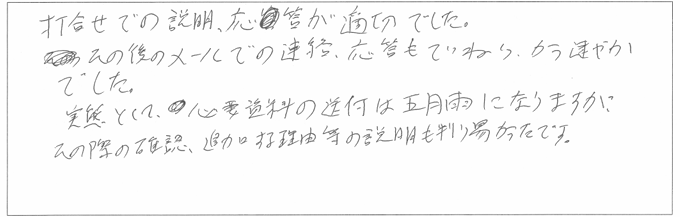 打合せでの説明、応答が適切でした。
その後のメールでの連絡、応答もていねい、かつ速やか
でした。
実態として、必要資料の送付は五月雨になりますが、
その際の確認、追加する理由等の説明も判り易かったです。